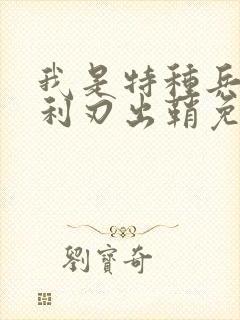 我是特種兵
利刃出鞘免
劉寶奇